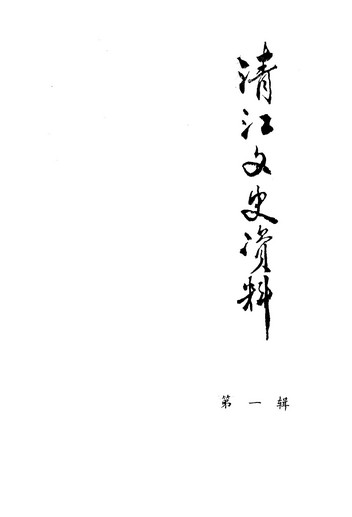 清江文史资料
第一辑